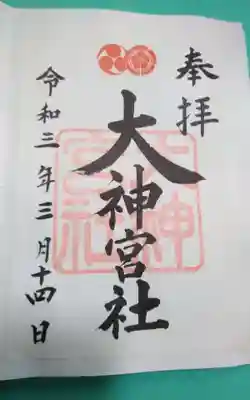 奉拝
大神宮社
令和三年三月十四日